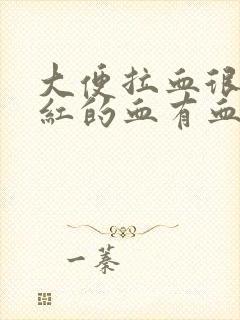 大便拉血很
红的血有血
一蓁